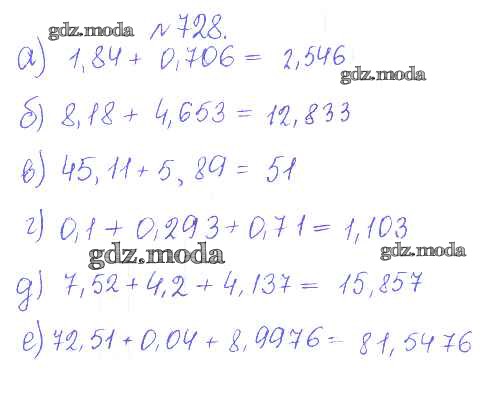 gdz.moda № 728.
а) 1,84 + 0,706 = 2,546
gdz.moda
б) 8,18 + 4,653 = 12,833
в) 45,11 + 5,89 = 51
г) 0,1 + 0,293 + 0,71 = 1,103
gdz.moda gdz.moda
д) 7,52 + 4,2 + 4,137 = 15,857
е) 72,51 + 0,04 + 8,9976 = 81,5476